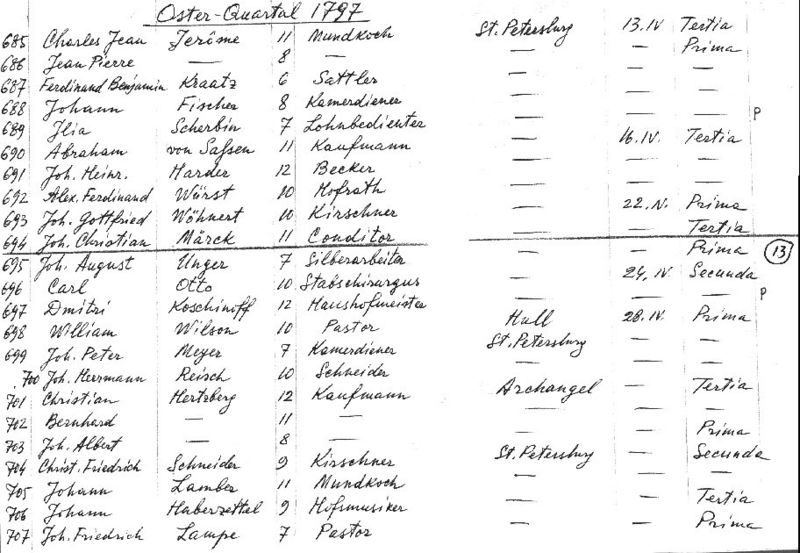 Oster-Quartal 1797
685 Charles Jean Jerôme 11 Mundkoch St. Petersburg 13.IV Tertia
686 Jean Pierre — 8 — — — Prima
687 Ferdinand Benjamin Kraatz 6 Sattler — — —
688 Johann Fischer 8 Kamerdiener — — —
689 Ilia Scherbin 7 Lohnbedienter — — — P
690 Abraham von Saßsen 11 Kaufmann — 16.IV. Tertia
691 Joh. Heinr. Harder 12 Becker — — —
692 Alex. Ferdinand Würst 10 Hofrath — — —
693 Joh. Gottfried Wöhnert 10 Kirschner — 22.IV. Prima
694 Joh. Christian Märck 11 Conditor — — Tertia
695 Joh. August Unger 7 Silberarbeiter — — Prima 13
696 Carl Otto 10 Stabschirurgus — 24.IV Secunda
697 Dmitri Koschinoff 12 Haushofmeister — — — P
698 William Wilson 10 Pastor Hull 28.IV. Prima
699 Joh. Peter Meyer 7 Kamerdiener St. Petersburg — —
700 Joh. Herrmann Reisch 10 Schneider — — —
701 Christian Hertzberg 12 Kaufmann Archangel — Tertia
702 Bernhard — 11 — — — —
703 Joh. Albert — 8 — — — Prima
704 Christ. Friedrich Schneider 9 Kirschner St. Petersburg — Secunda
705 Johann Lamber 11 Mundkoch — — —
706 Johann Haberzettel 9 Hofmusiker — — Tertia
707 Joh. Friedrich Lampe 7 Pastor — — Prima